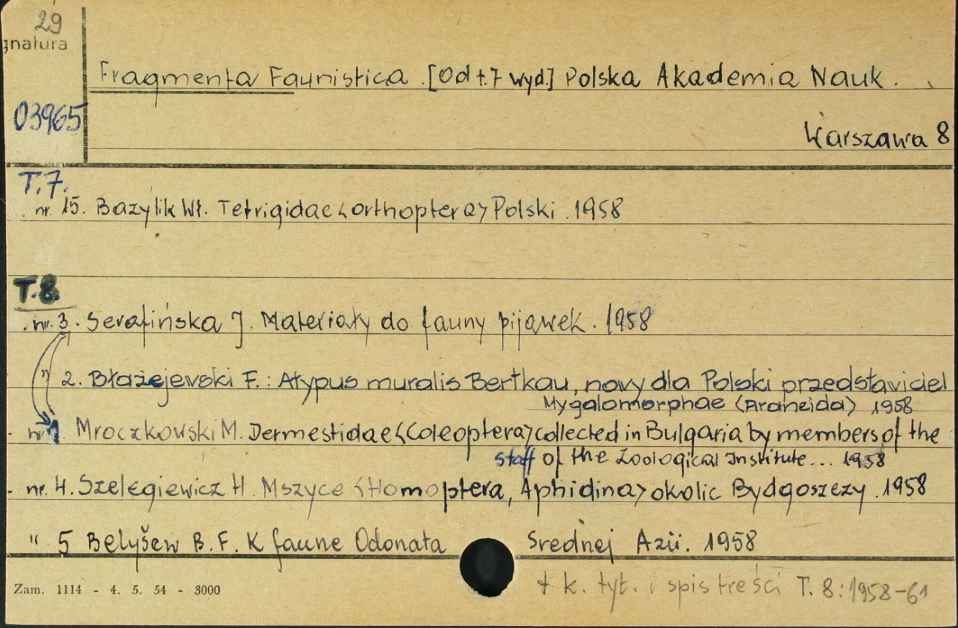 29
gnatura
Fragmenta Faunistica. [Od t.7 wyd] Polska Akademia Nauk.
03965
Warszawa 8
T.7.
nr. 15. Bazylik Wł. Tetrigidae <orthoptera> Polski. 1958
T.8
nr. 3. Serafińska J. Materiały do fauny pijawek. 1958
" 2. Błażejewski F.: Atypus muralis Bertkau, nowy dla Polski przedstawiciel
Mygalomorphae <Araneida> 1958
nr 1 Mroczkowski M. Dermestidae <Coleoptera> collected in Bulgaria by members of the
staff of the Zoological Institute... 1958
nr. 4. Szelęgiewicz H. Mszyce <Homoptera, Aphidina> okolic Bydgoszczy. 1958
" 5 Belyšew B. F. K faune Odonata Srednej Azii. 1958
Zam. 1114 - 4. 5. 54 - 3000
+ k. tyt. i spis treści T. 8: 1958-61